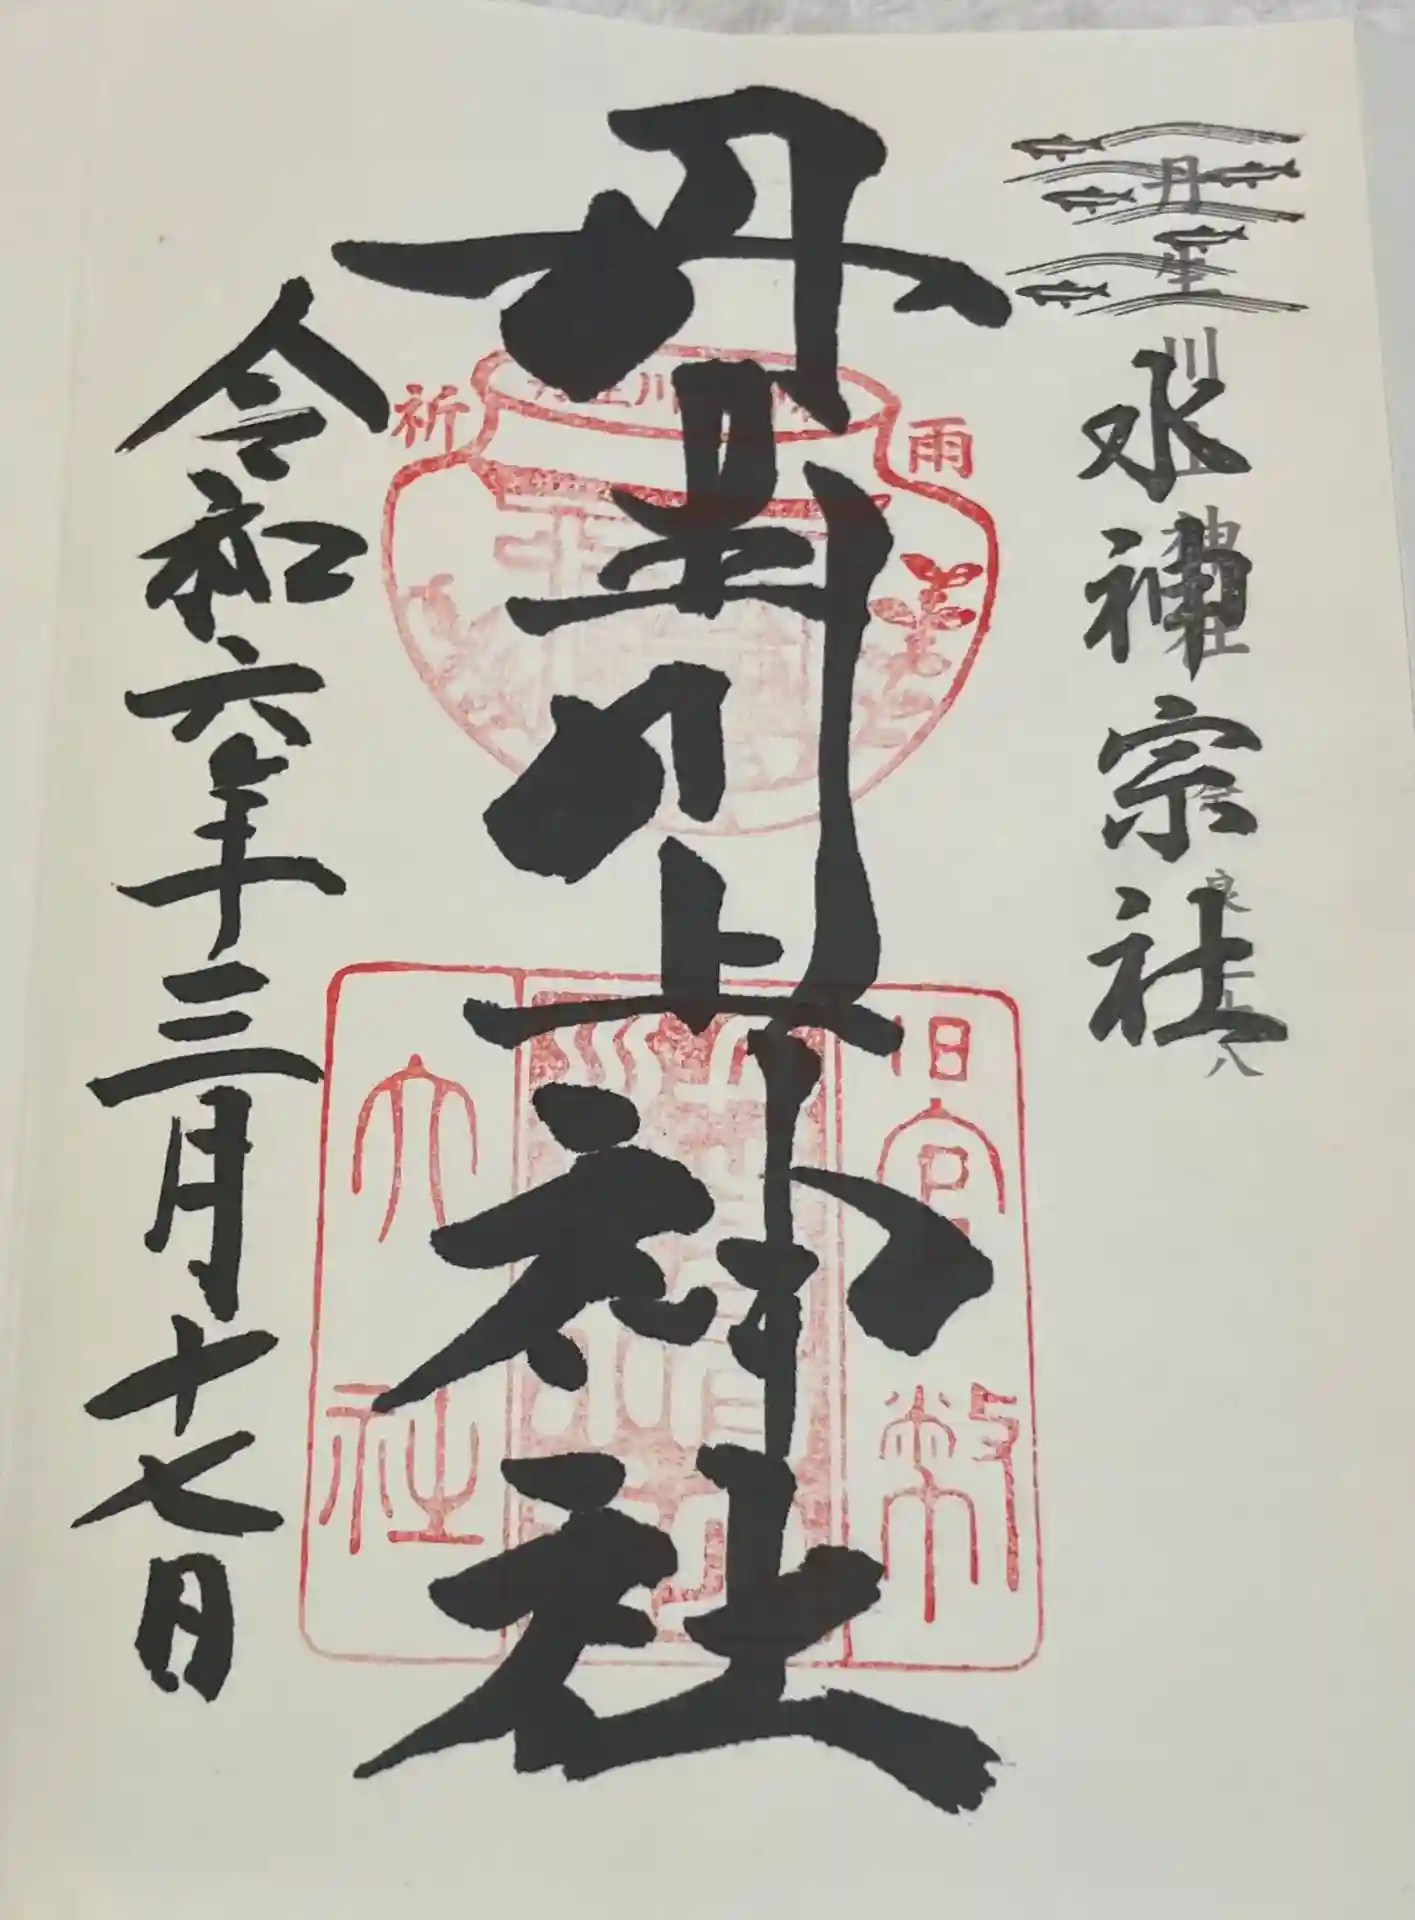 水神宗社
丹生川上神社
令和六年三月十七日
祈雨
旧官幣
大社